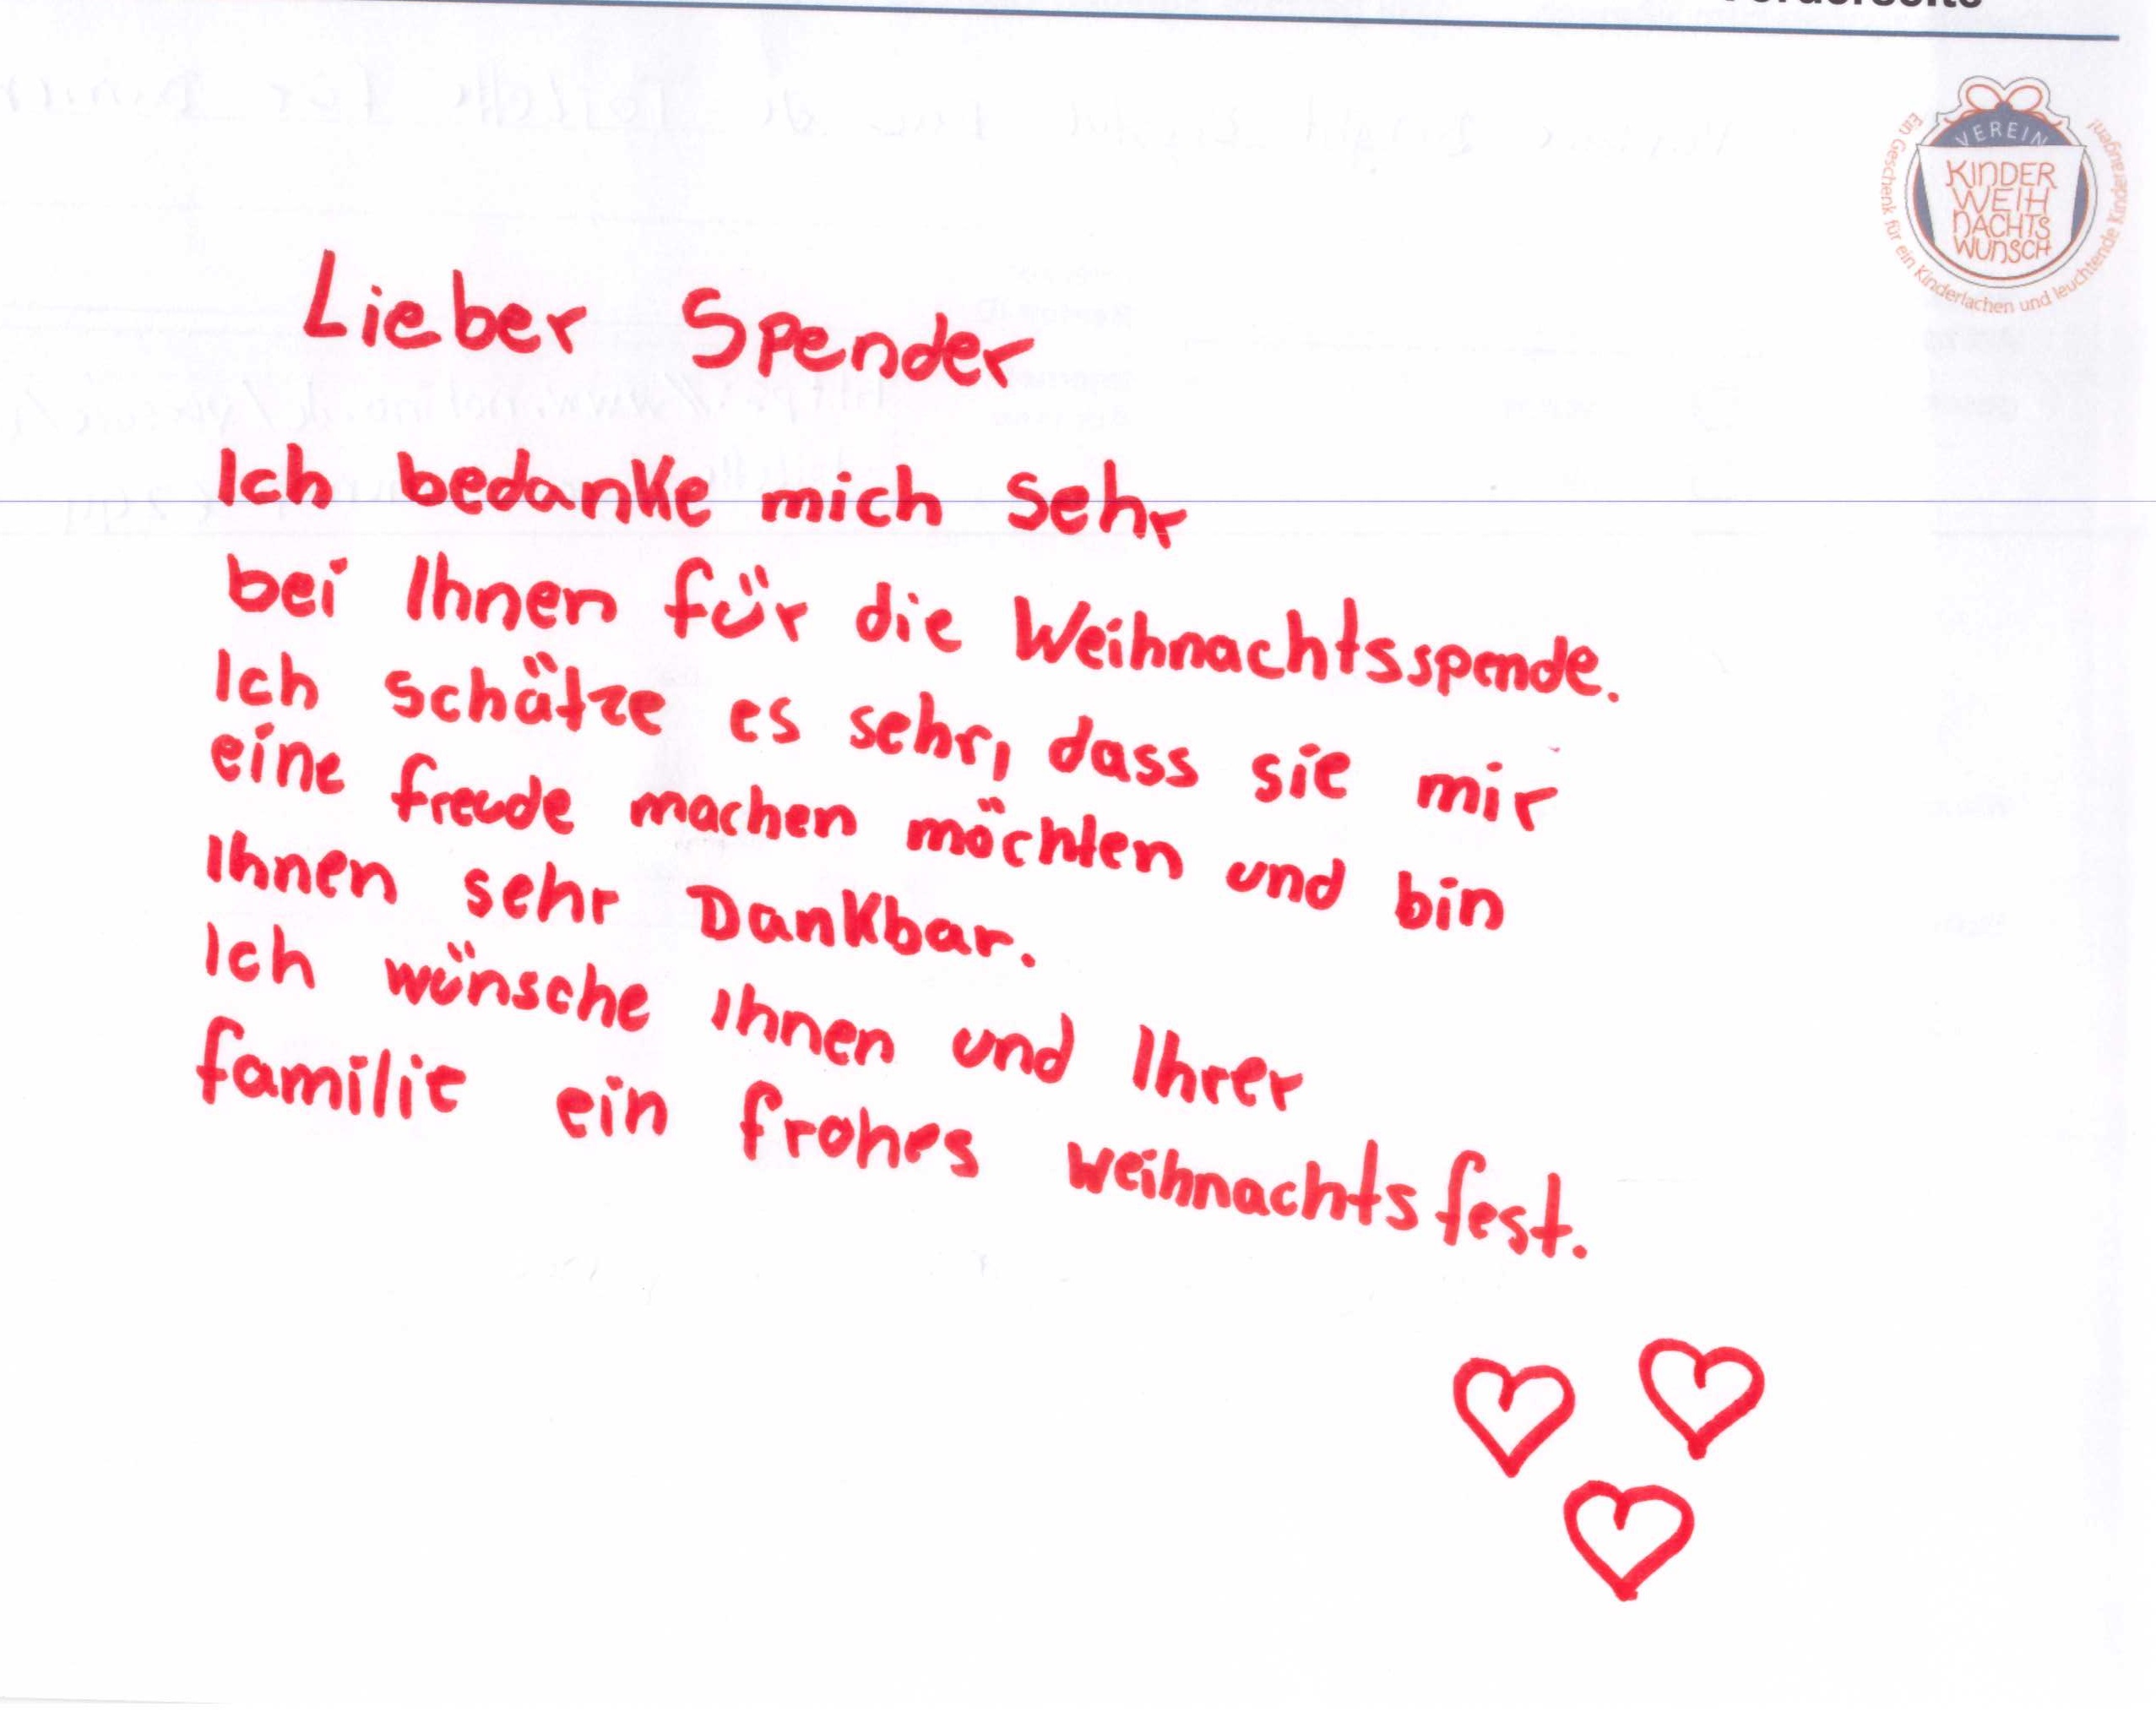 VEREIN
KINDER
WEIH
NACHTS
WUNSCH
Ein Geschenk für ein Kinderlachen und leuchtende Kinderaugen!
Lieber Spender
Ich bedanke mich sehr
bei Ihnen für die Weihnachtsspende.
Ich schätze es sehr, dass sie mir
eine freude machen möchten und bin
Ihnen sehr Dankbar.
Ich wünsche Ihnen und Ihrer
familie ein frohes weihnachtsfest.